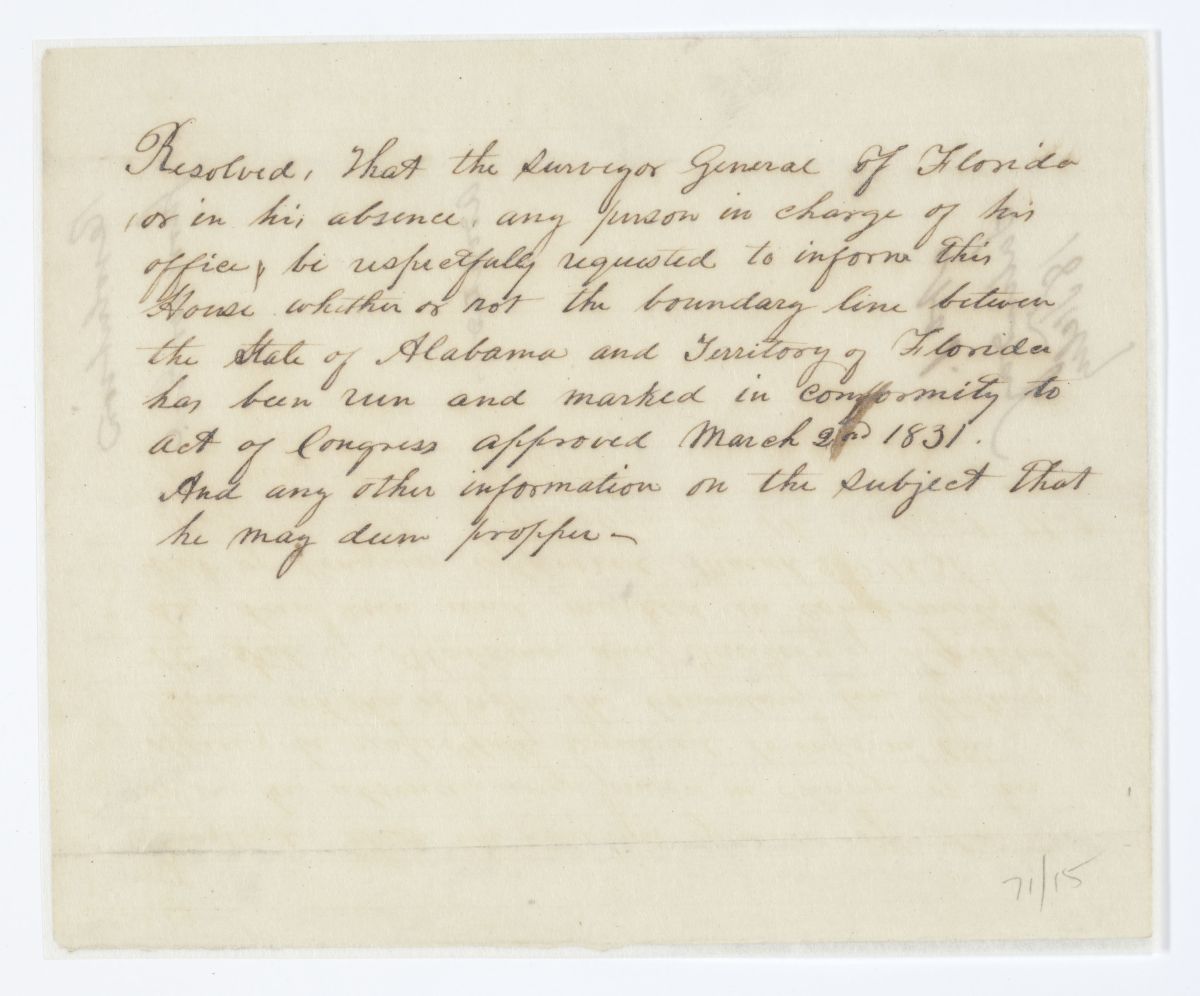 Resolved, That the Surveyor General of Florida
or in his absence any person in charge of his
office, be respectfully requested to inform this
House whether or not the boundary line between
the State of Alabama and Territory of Florida
has been run and marked in conformity to
act of Congress approved March 2nd 1831.
And any other information on the subject that
he may deem propper
71/15